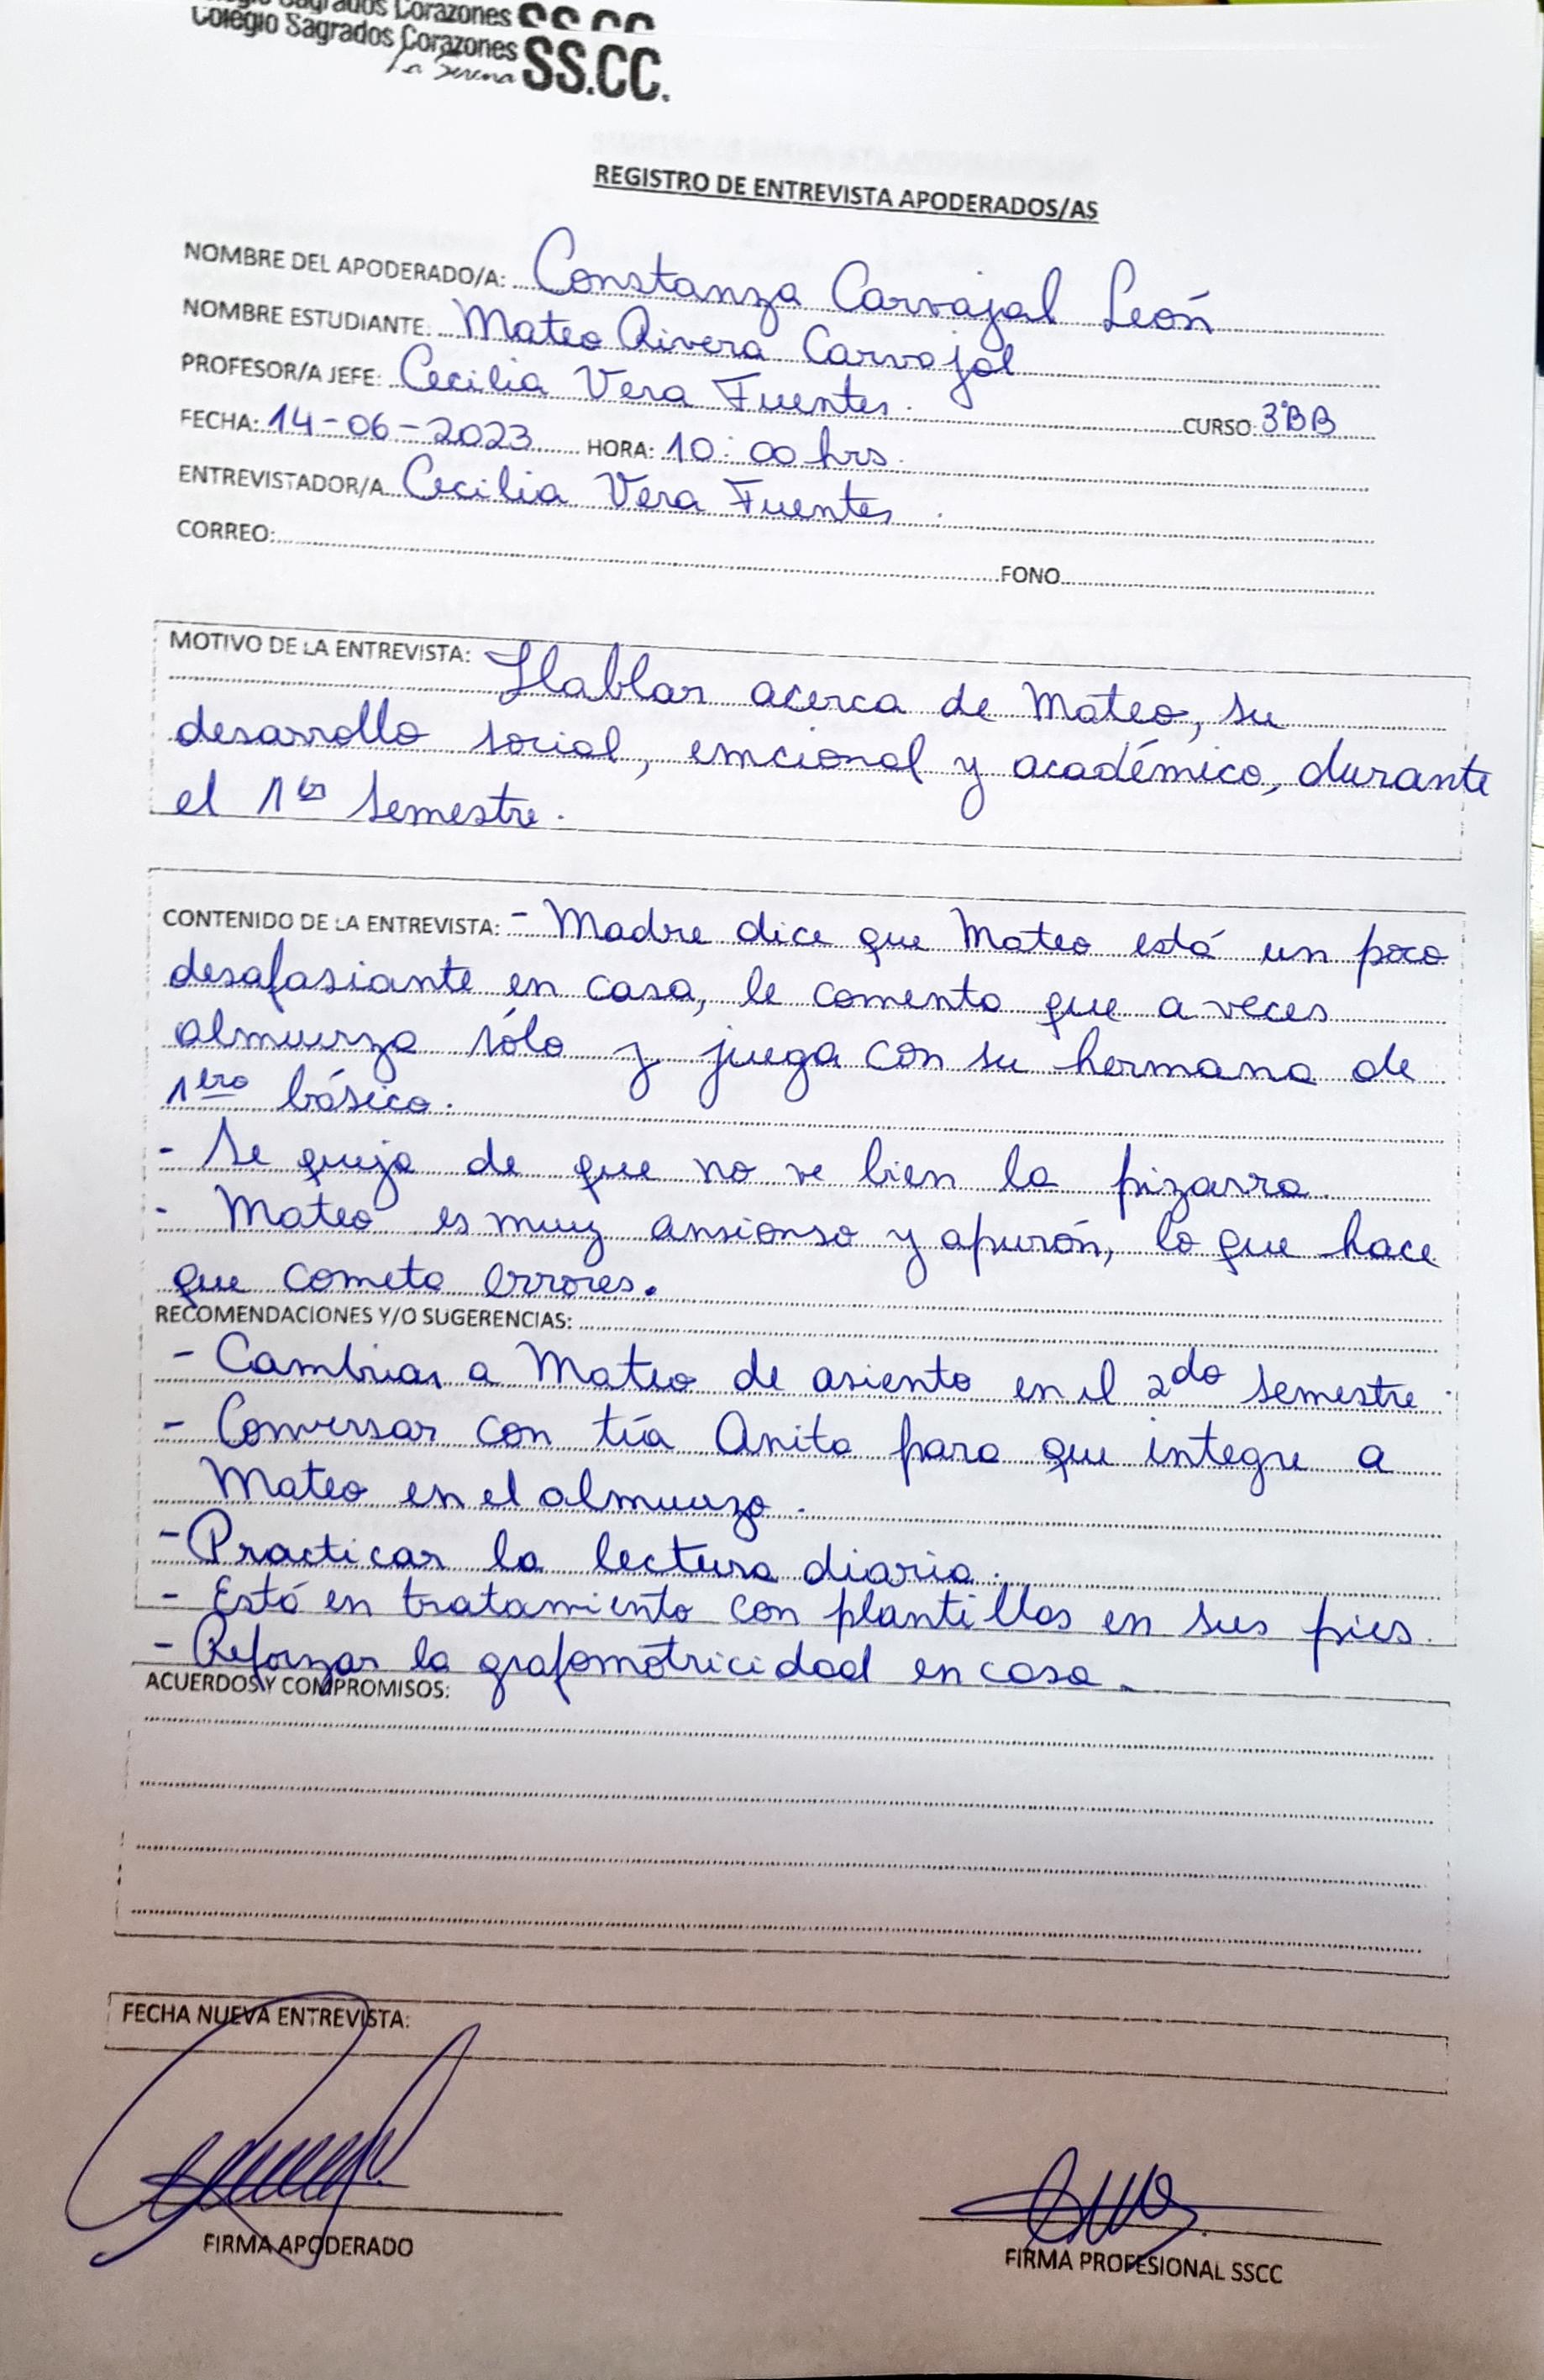 Sagrados Corazones SS.CC.
Colegio Sagrados Corazones SS.CC.
La Serena
REGISTRO DE ENTREVISTA APODERADOS/AS
NOMBRE DEL APODERADO/A: Constanza Carvajal León
NOMBRE ESTUDIANTE: Mateo Rivera Carvajal
PROFESOR/A JEFE: Cecilia Vera Fuentes. CURSO: 3°BB
FECHA: 14-06-2023 HORA: 10:00 hrs.
ENTREVISTADOR/A Cecilia Vera Fuentes.
CORREO: FONO
MOTIVO DE LA ENTREVISTA: Hablar acerca de Mateo, su
desarrollo social, emcional y académico, durante
el 1er semestre.
CONTENIDO DE LA ENTREVISTA: - Madre dice que Mateo está un poco
desafasiante en casa, le comenta que a veces
almuerza sólo y juega con su hermana de
1ero básico.
- Se queja de que no ve bien la pizarra
- Mateo es muy ansionso y apurón, lo que hace
que cometa errores.
RECOMENDACIONES Y/O SUGERENCIAS:
- Cambiar a Mateo de asiento en el 2do semestre.
- Conversar con tía Anita para que integre a
Mateo en el almuerzo.
- Practicar la lectura diaria.
- Está en tratamiento con plantillas en sus pies.
- Reforzar la grafomotricidad en casa.
ACUERDOS Y COMPROMISOS:
FECHA NUEVA ENTREVISTA:
FIRMA APODERADO
FIRMA PROFESIONAL SSCC